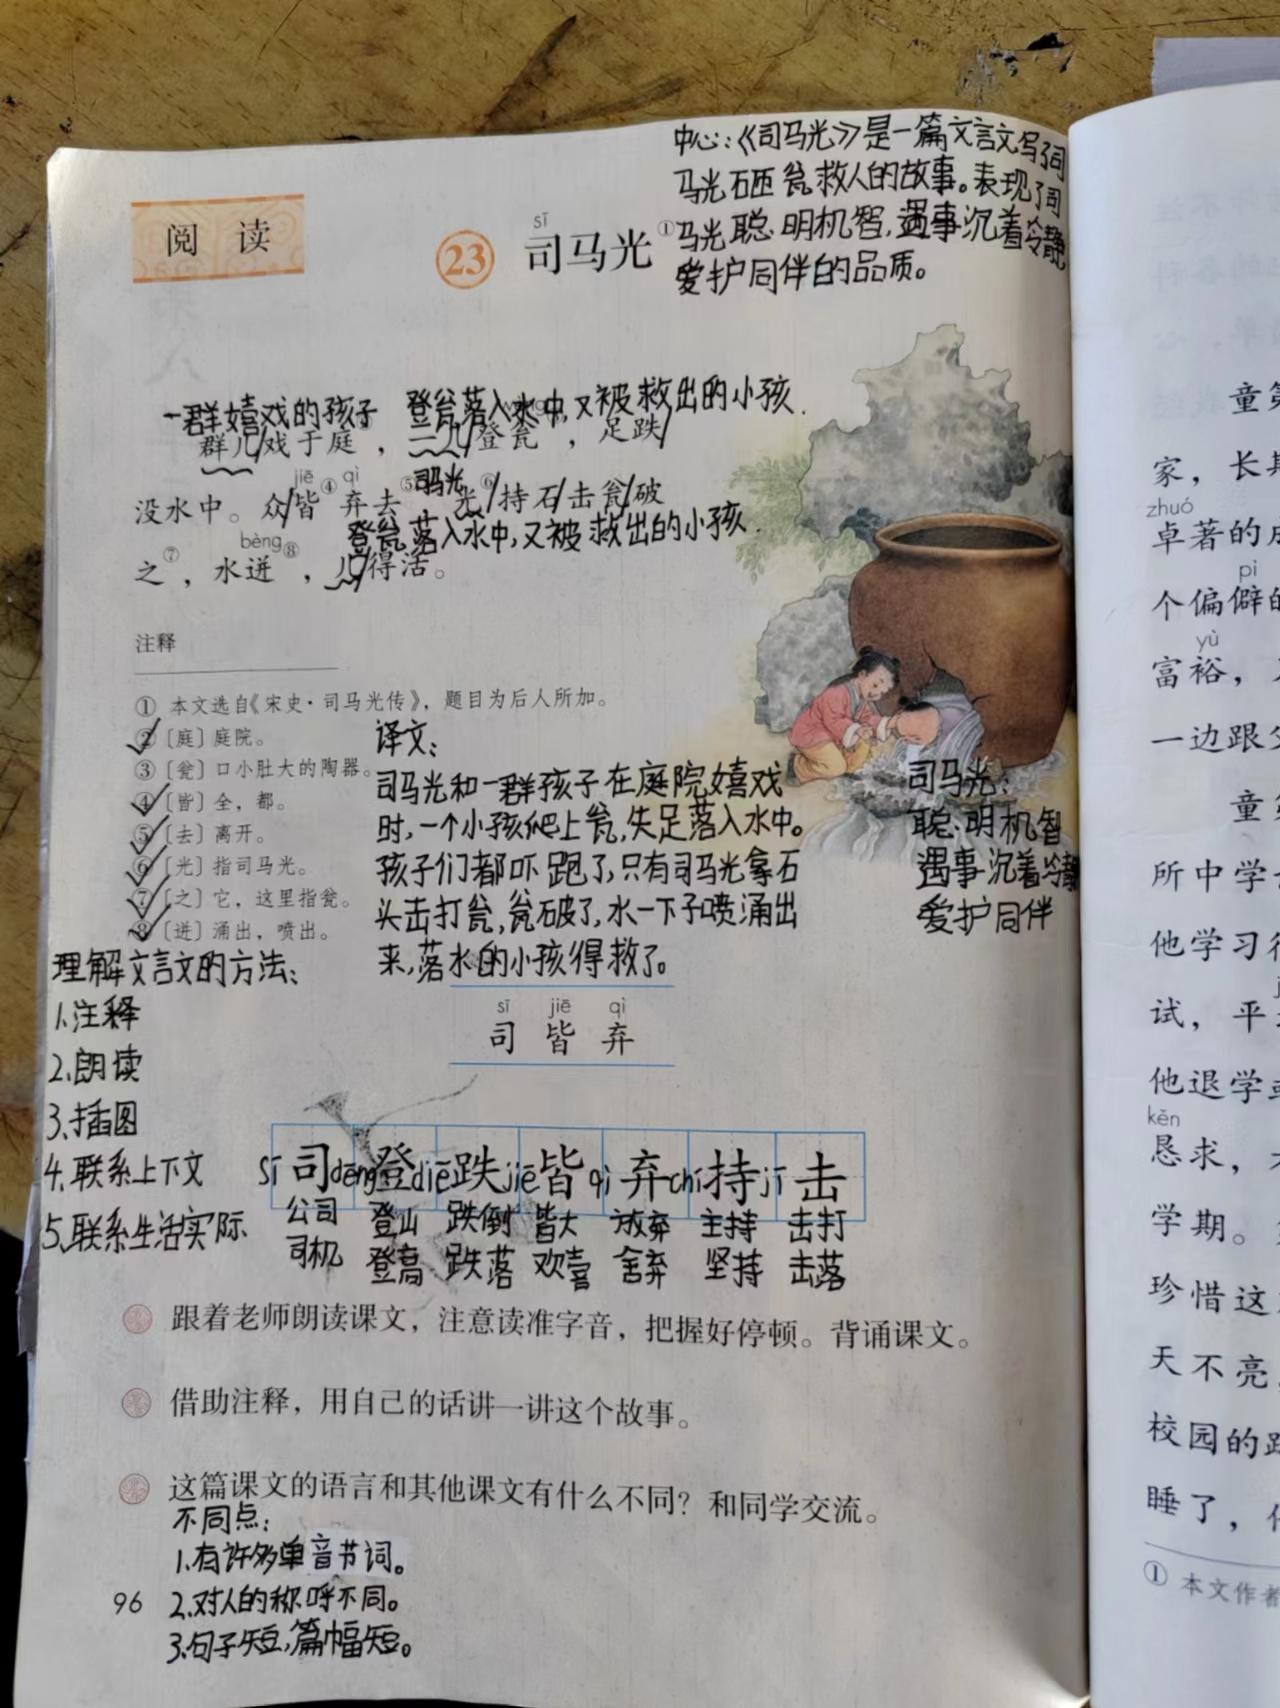 中心:《司马光》是一篇文言文写了司
马光石匝瓮救人的故事。表现了司
马光聪明机智,遇事沉着冷静
爱护同伴的品质。
阅 读
sī
23 司马光①
一群嬉戏的孩子 登瓮落入水中,又被救出的小孩.
群儿/戏于庭,一儿/登瓮,足跌/
jiē qì
没水中。众/皆④弃去⑤,光⑥/持石/击瓮/破
司马光
登瓮落入水中,又被救出的小孩.
bèng
之⑦,水迸⑧,儿/得活。
注释
① 本文选自《宋史·司马光传》,题目为后人所加。
②〔庭〕庭院。
③〔瓮〕口小肚大的陶器。
④〔皆〕全,都。
⑤〔去〕离开。
⑥〔光〕指司马光。
⑦〔之〕它,这里指瓮。
⑧〔迸〕涌出,喷出。
译文:
司马光和一群孩子在庭院嬉戏
时,一个小孩爬上瓮,失足落入水中。
孩子们都吓跑了,只有司马光拿石
头击打瓮,瓮破了,水一下子喷涌出
来,落水的小孩得救了。
司马光:
聪明机智
遇事沉着冷静
爱护同伴
理解文言文的方法:
1.注释
2.朗读
3.插图
4.联系上下文
5.联系生活实际
sī jiē qì
司 皆 弃
sī司 dēng登 diē跌 jiē皆 qì弃 chí持 jī击
公司 登山 跌倒 皆大 放弃 主持 击打
司机 登高 跌落 欢喜 舍弃 坚持 击落
跟着老师朗读课文,注意读准字音,把握好停顿。背诵课文。
借助注释,用自己的话讲一讲这个故事。
这篇课文的语言和其他课文有什么不同?和同学交流。
不同点:
1.有许多单音节词。
2.对人的称呼不同。
3.句子短,篇幅短。
96
童第
家,长期
zhuó
卓著的成
pì
个偏僻的
yù
富裕,
一边跟父
童第
所中学
他学习很
试,平
他退学或
kěn
恳求,
学期。
珍惜这
天不亮,
校园的路
睡了,他
① 本文作者